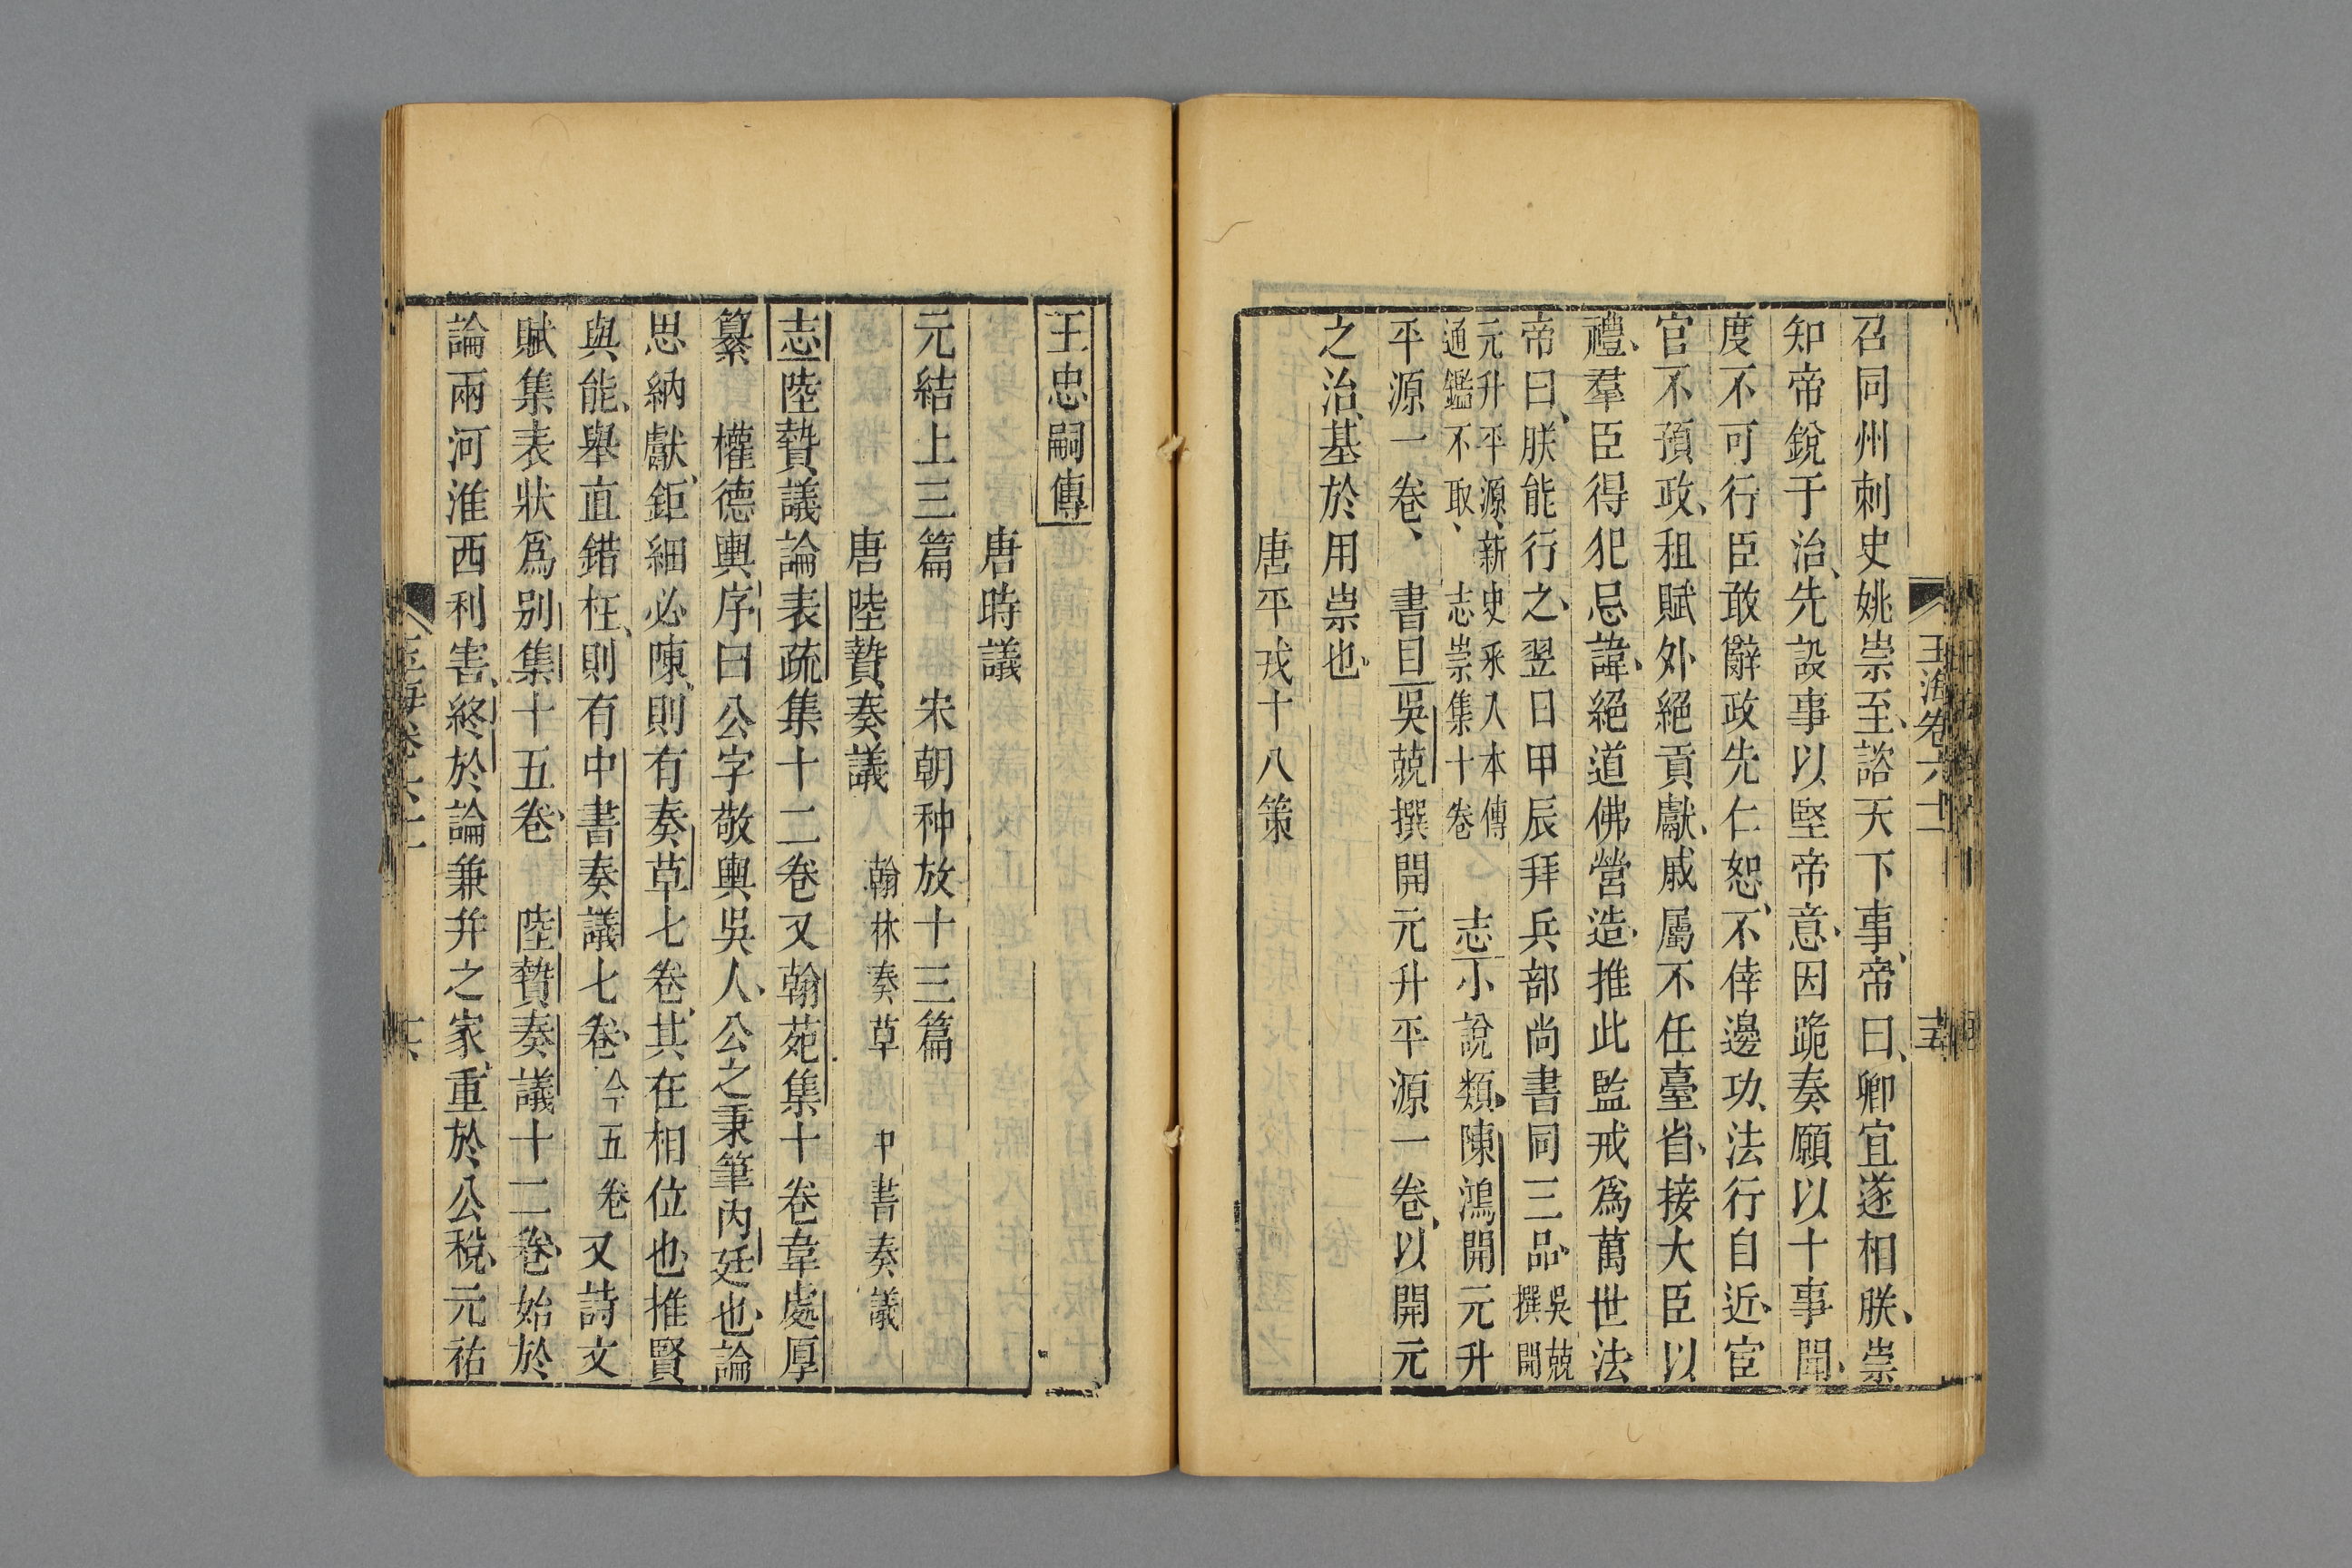 玉海卷六十一
十五
召同州刺史姚崇至諮天下事帝曰卿宜遂相朕崇
知帝銳于治先設事以堅帝意因跪奏願以十事聞
度不可行臣敢辭政先仁恕不倖邊功法行自近宦
官不預政租賦外絕貢獻戚屬不任臺省接大臣以
禮羣臣得犯忌諱絕道佛營造推此監戒爲萬世法
帝曰朕能行之翌日甲辰拜兵部尚書同三品吳兢撰開
元升平源新史采入本傳通鑑不取志崇集十卷 志小說類陳鴻開元升
平源一卷 書目吳兢撰開元升平源一卷以開元
之治基於用崇也
唐平戎十八策
王忠嗣傳
唐時議
元結上三篇 宋朝种放十三篇
唐陸贄奏議 翰林奏草 中書奏議
志陸贄議論表疏集十二卷又翰苑集十卷韋處厚
纂 權德輿序曰公字敬輿吳人公之秉筆內廷也論
思納獻鉅細必陳則有奏草七卷其在相位也推賢
與能舉直錯枉則有中書奏議七卷今五卷又詩文
賦集表狀爲別集十五卷 陸贄奏議十二卷始於
論兩河淮西利害終於論兼幷之家重於公稅元祐